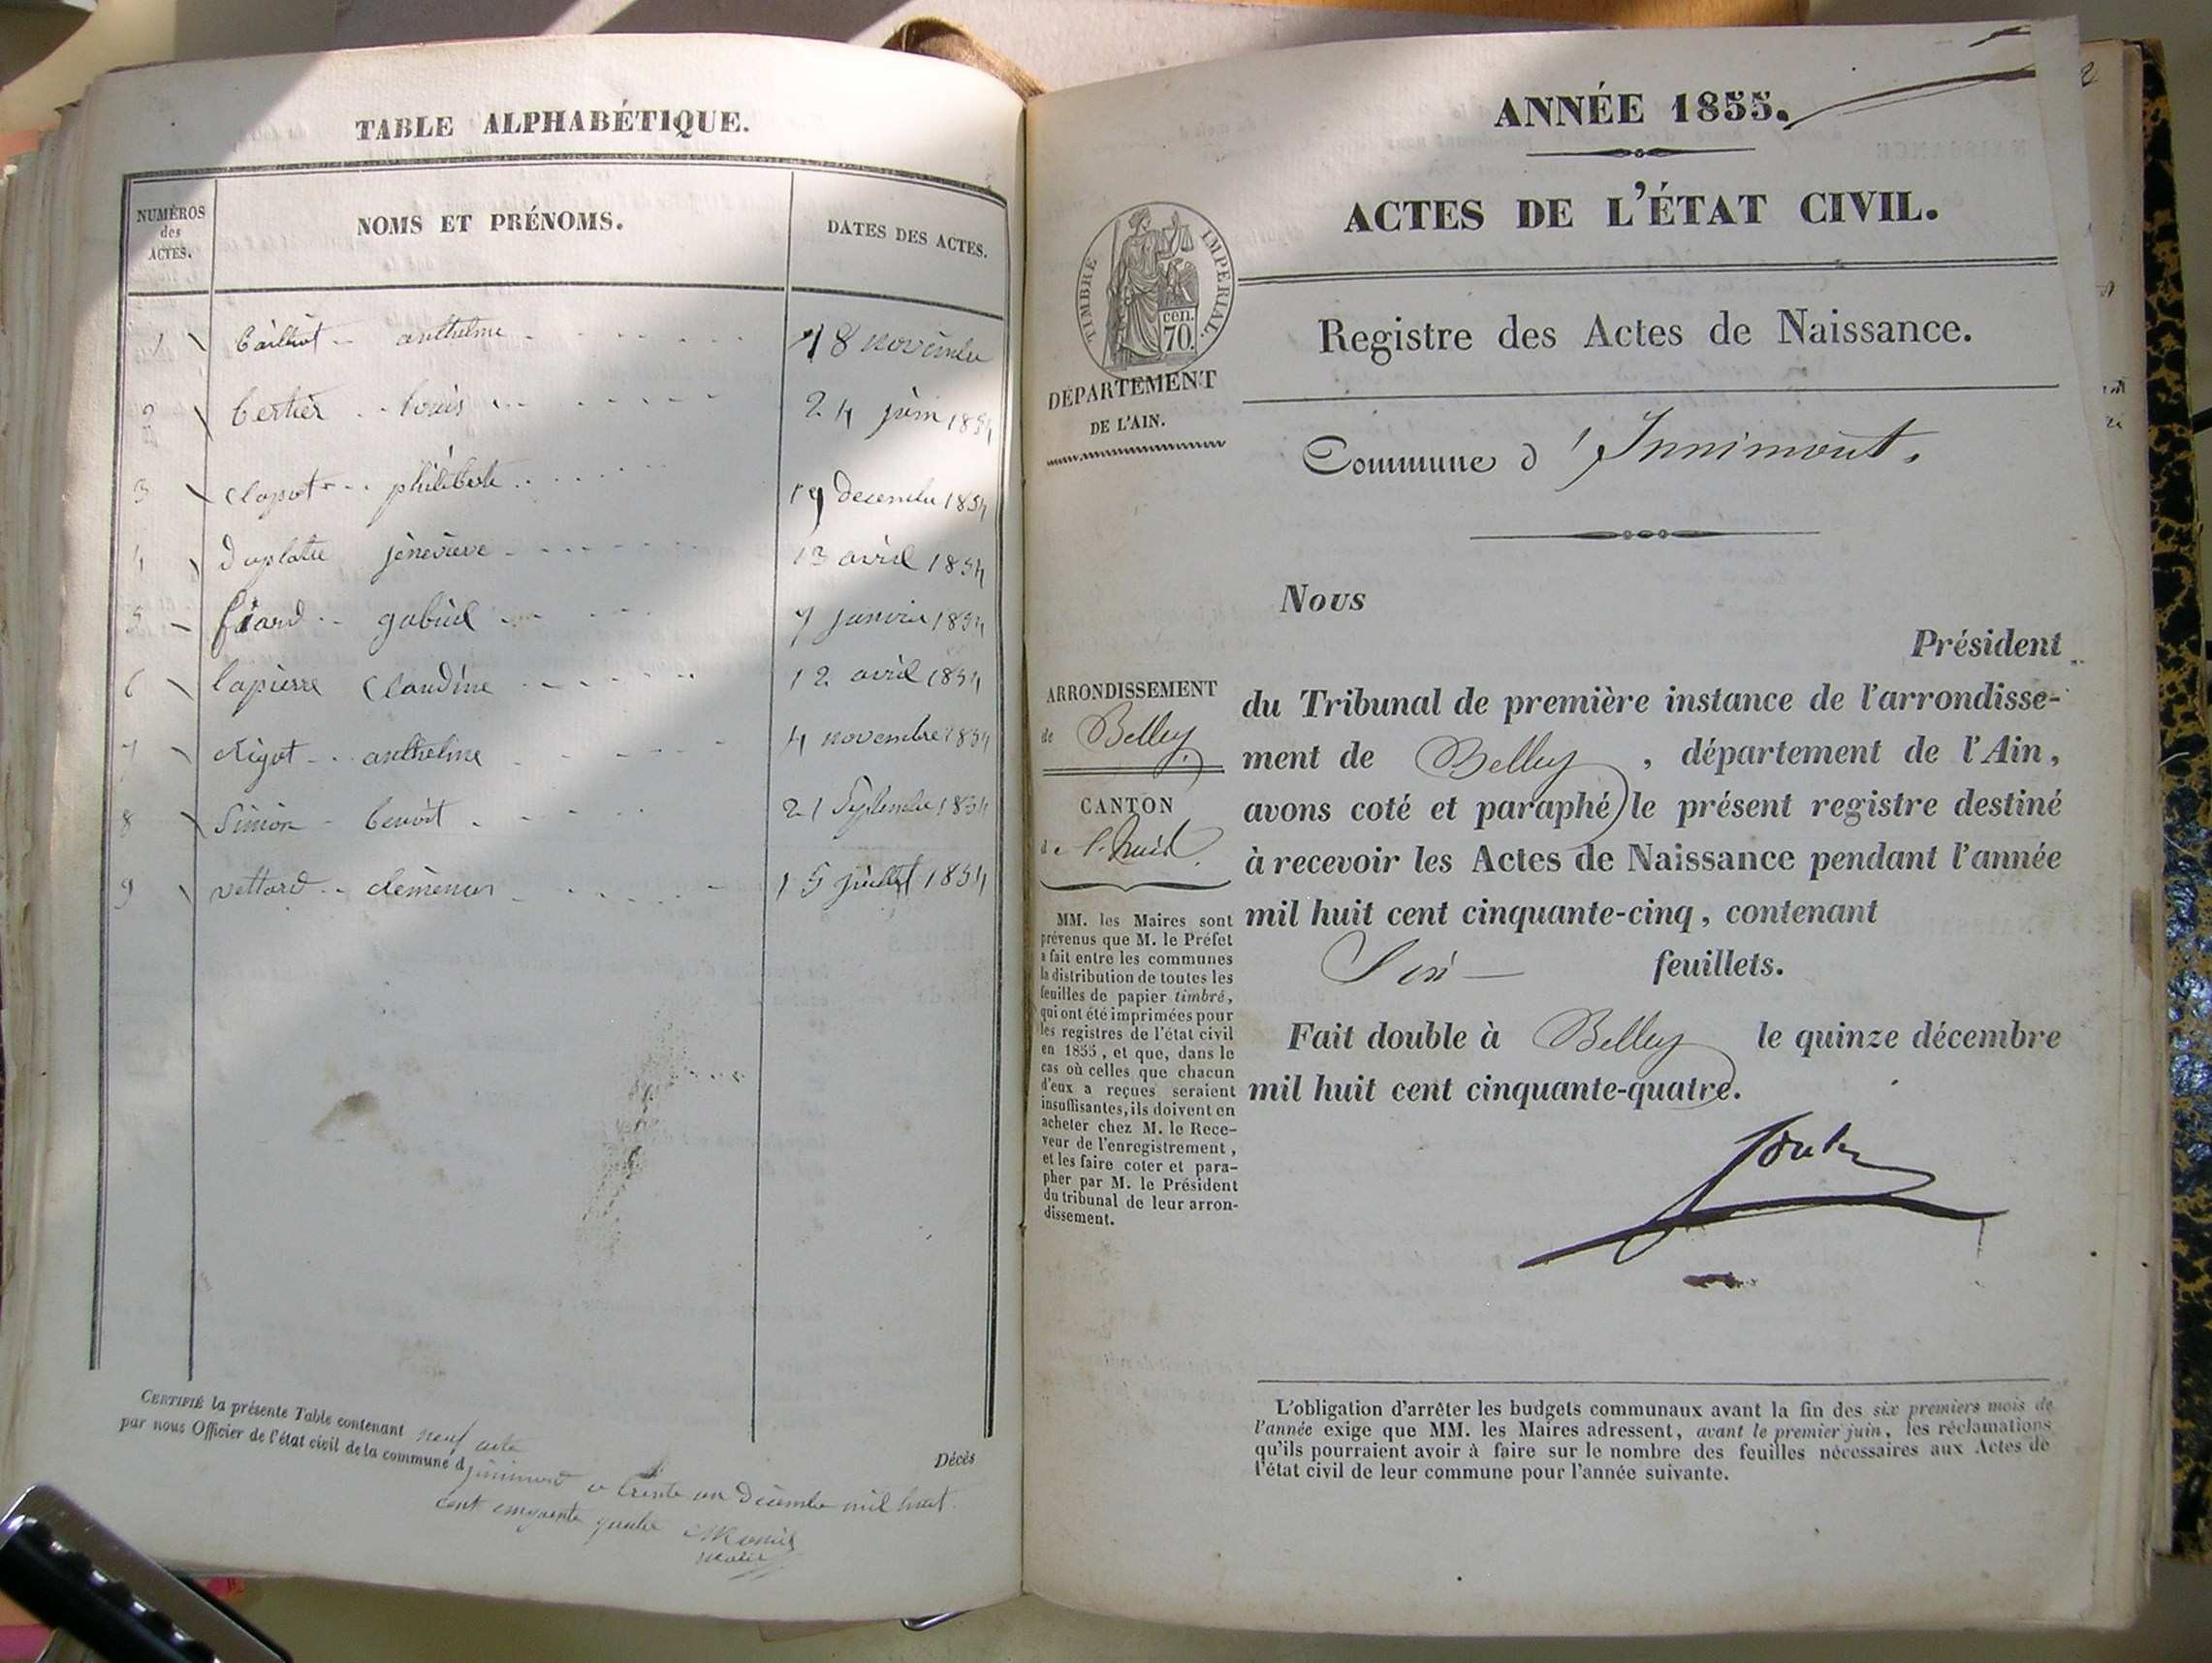 TABLE ALPHABÉTIQUE.
NUMÉROS
des
ACTES.
NOMS ET PRÉNOMS.
DATES DES ACTES.
1 anthelme 18 novembre
2 bertier louis 24 juin 1854
3 clapot philiberte 19 decembre 1854
4 duplatre jèneviève 13 avril 1854
5 féard gabriel 7 janvier 1854
6 lapierre Claudine 12 avril 1854
7 Rigot anthelme 4 novembre 1854
8 Simon benoit 21 Septembre 1854
9 vettard 15 juillet 1854
CERTIFIÉ la présente Table contenant neuf acte
par nous Officier de l'état civil de la commune d'inimont ce trente un Décembre mil huit
cent cinquante quatre
maire
Décès
ANNÉE 1855.
ACTES DE L'ÉTAT CIVIL.
TIMBRE IMPÉRIAL.
cen.
70.
Registre des Actes de Naissance.
DÉPARTEMENT
DE L'AIN.
Commune d'Innimont.
Nous
Président
ARRONDISSEMENT
de Belley
CANTON
de l'huis
du Tribunal de première instance de l'arrondisse-
ment de Belley, département de l'Ain,
avons coté et paraphé le présent registre destiné
à recevoir les Actes de Naissance pendant l'année
mil huit cent cinquante-cinq, contenant
Six feuillets.
Fait double à Belley le quinze décembre
mil huit cent cinquante-quatre.
MM. les Maires sont
prévenus que M. le Préfet
a fait entre les communes
la distribution de toutes les
feuilles de papier timbré,
qui ont été imprimées pour
les registres de l'état civil
en 1855, et que, dans le
cas où celles que chacun
d'eux a reçues seraient
insuffisantes, ils doivent en
acheter chez M. le Rece-
veur de l'enregistrement,
et les faire coter et para-
pher par M. le Président
du tribunal de leur arron-
dissement.
L'obligation d'arrêter les budgets communaux avant la fin des six premiers mois de
l'année exige que MM. les Maires adressent, avant le premier juin, les réclamations
qu'ils pourraient avoir à faire sur le nombre des feuilles nécessaires aux Actes de
l'état civil de leur commune pour l'année suivante.